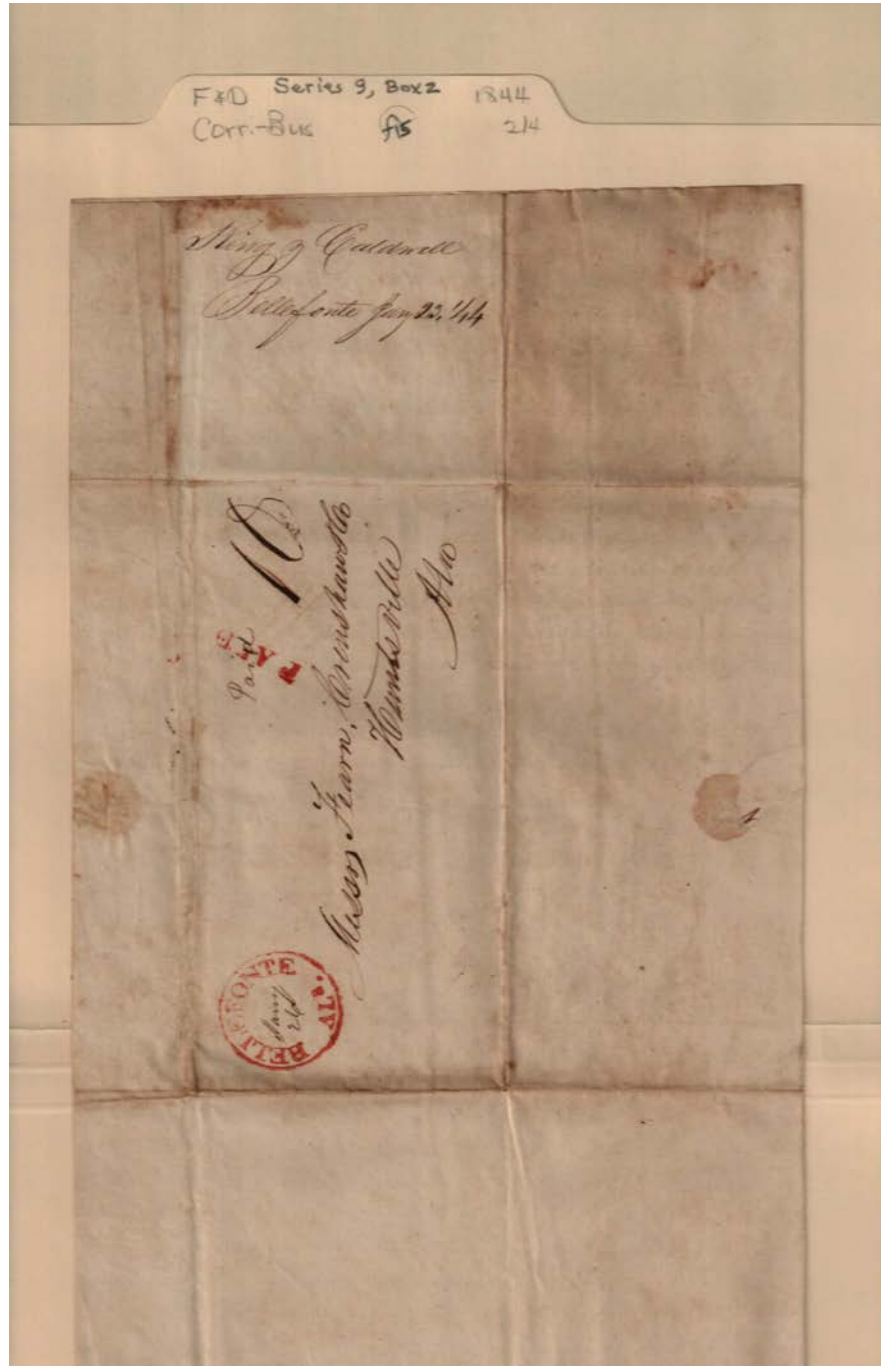 F&D Series 9, Box 2 1844
Corr.-Bus 2/4
King & Caldwell
Bellefonte Jany 22, '44
10
Paid
PAID
Messrs Fearn, Crenshaw & Co
Huntsville
Ala
BELLEFONTE Ala.
Jany
24